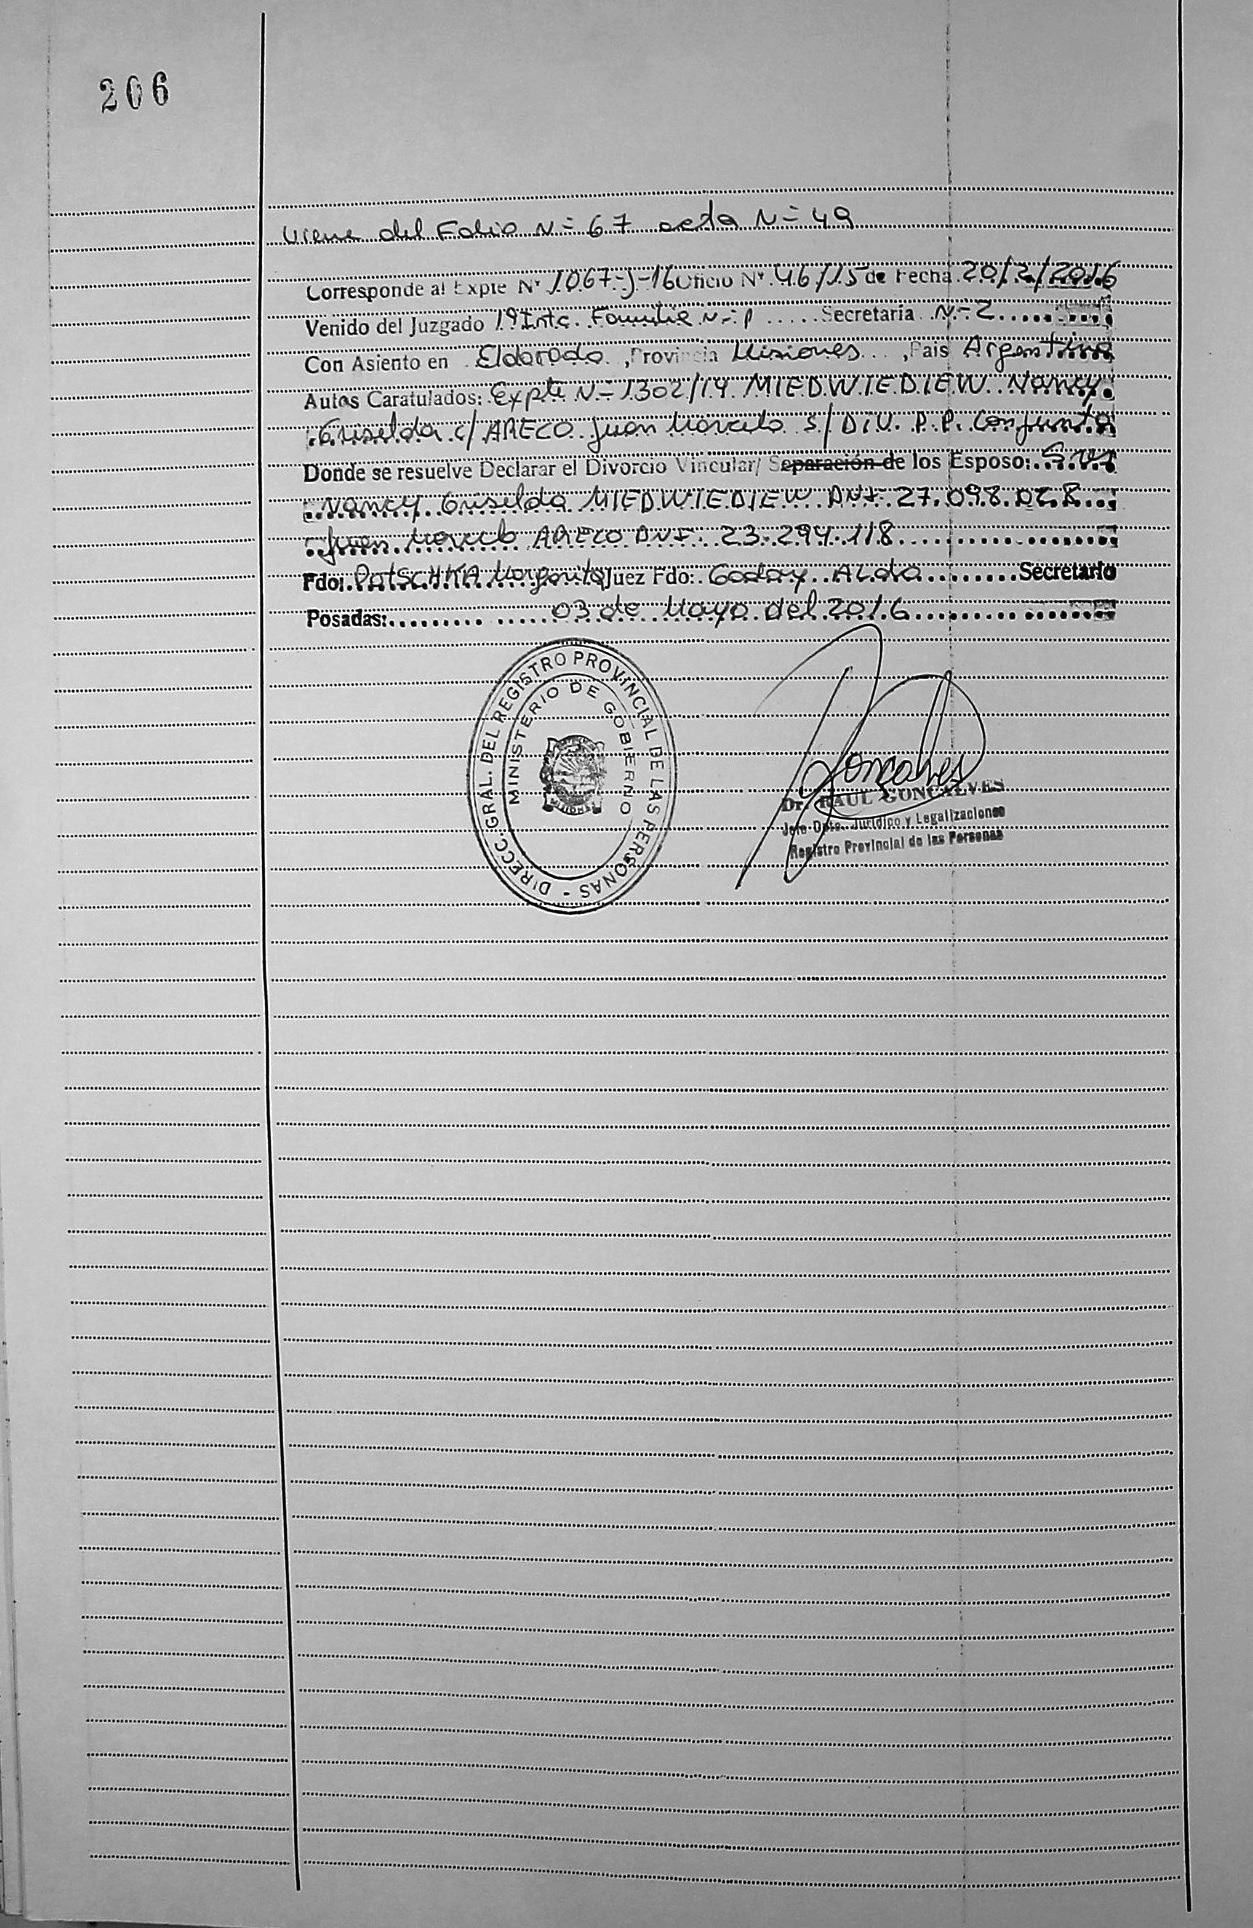 206
Viene del Folio N= 67 acta N= 49
Corresponde al Expte Nº 1067-J-16 Oficio Nº 46/15 de Fecha 20/2/2016
Venido del Juzgado 1º Intc. Familia N=1 ..... Secretaria N=2.....
Con Asiento en Eldorado, Provincia Misiones..., País Argentina
Autos Caratulados: Expte N= 1302/14 MIEDWIEDIEW Nancy
Griselda c/ ARECO Juan Marcelo S/ DIV. P.P. Conjunta
Donde se resuelve Declarar el Divorcio Vincular/ Separación de los Esposo: Sres
Nancy Griselda MIEDWIEDIEW DNI 27.098.028
Juan Marcelo ARECO DNI 23.294.118
Fdo: PATSCHKA Margarita Juez Fdo: Godoy Alda ....... Secretario
Posadas: ......... 03 de Mayo del 2016
DIRECC. GRAL. DEL REGISTRO PROVINCIAL DE LAS PERSONAS -
MINISTERIO DE GOBIERNO
MISIONES
Goncalves
Dr. RAUL GONCALVES
Jefe Dpto. Jurídico y Legalizaciones
Registro Provincial de las Personas